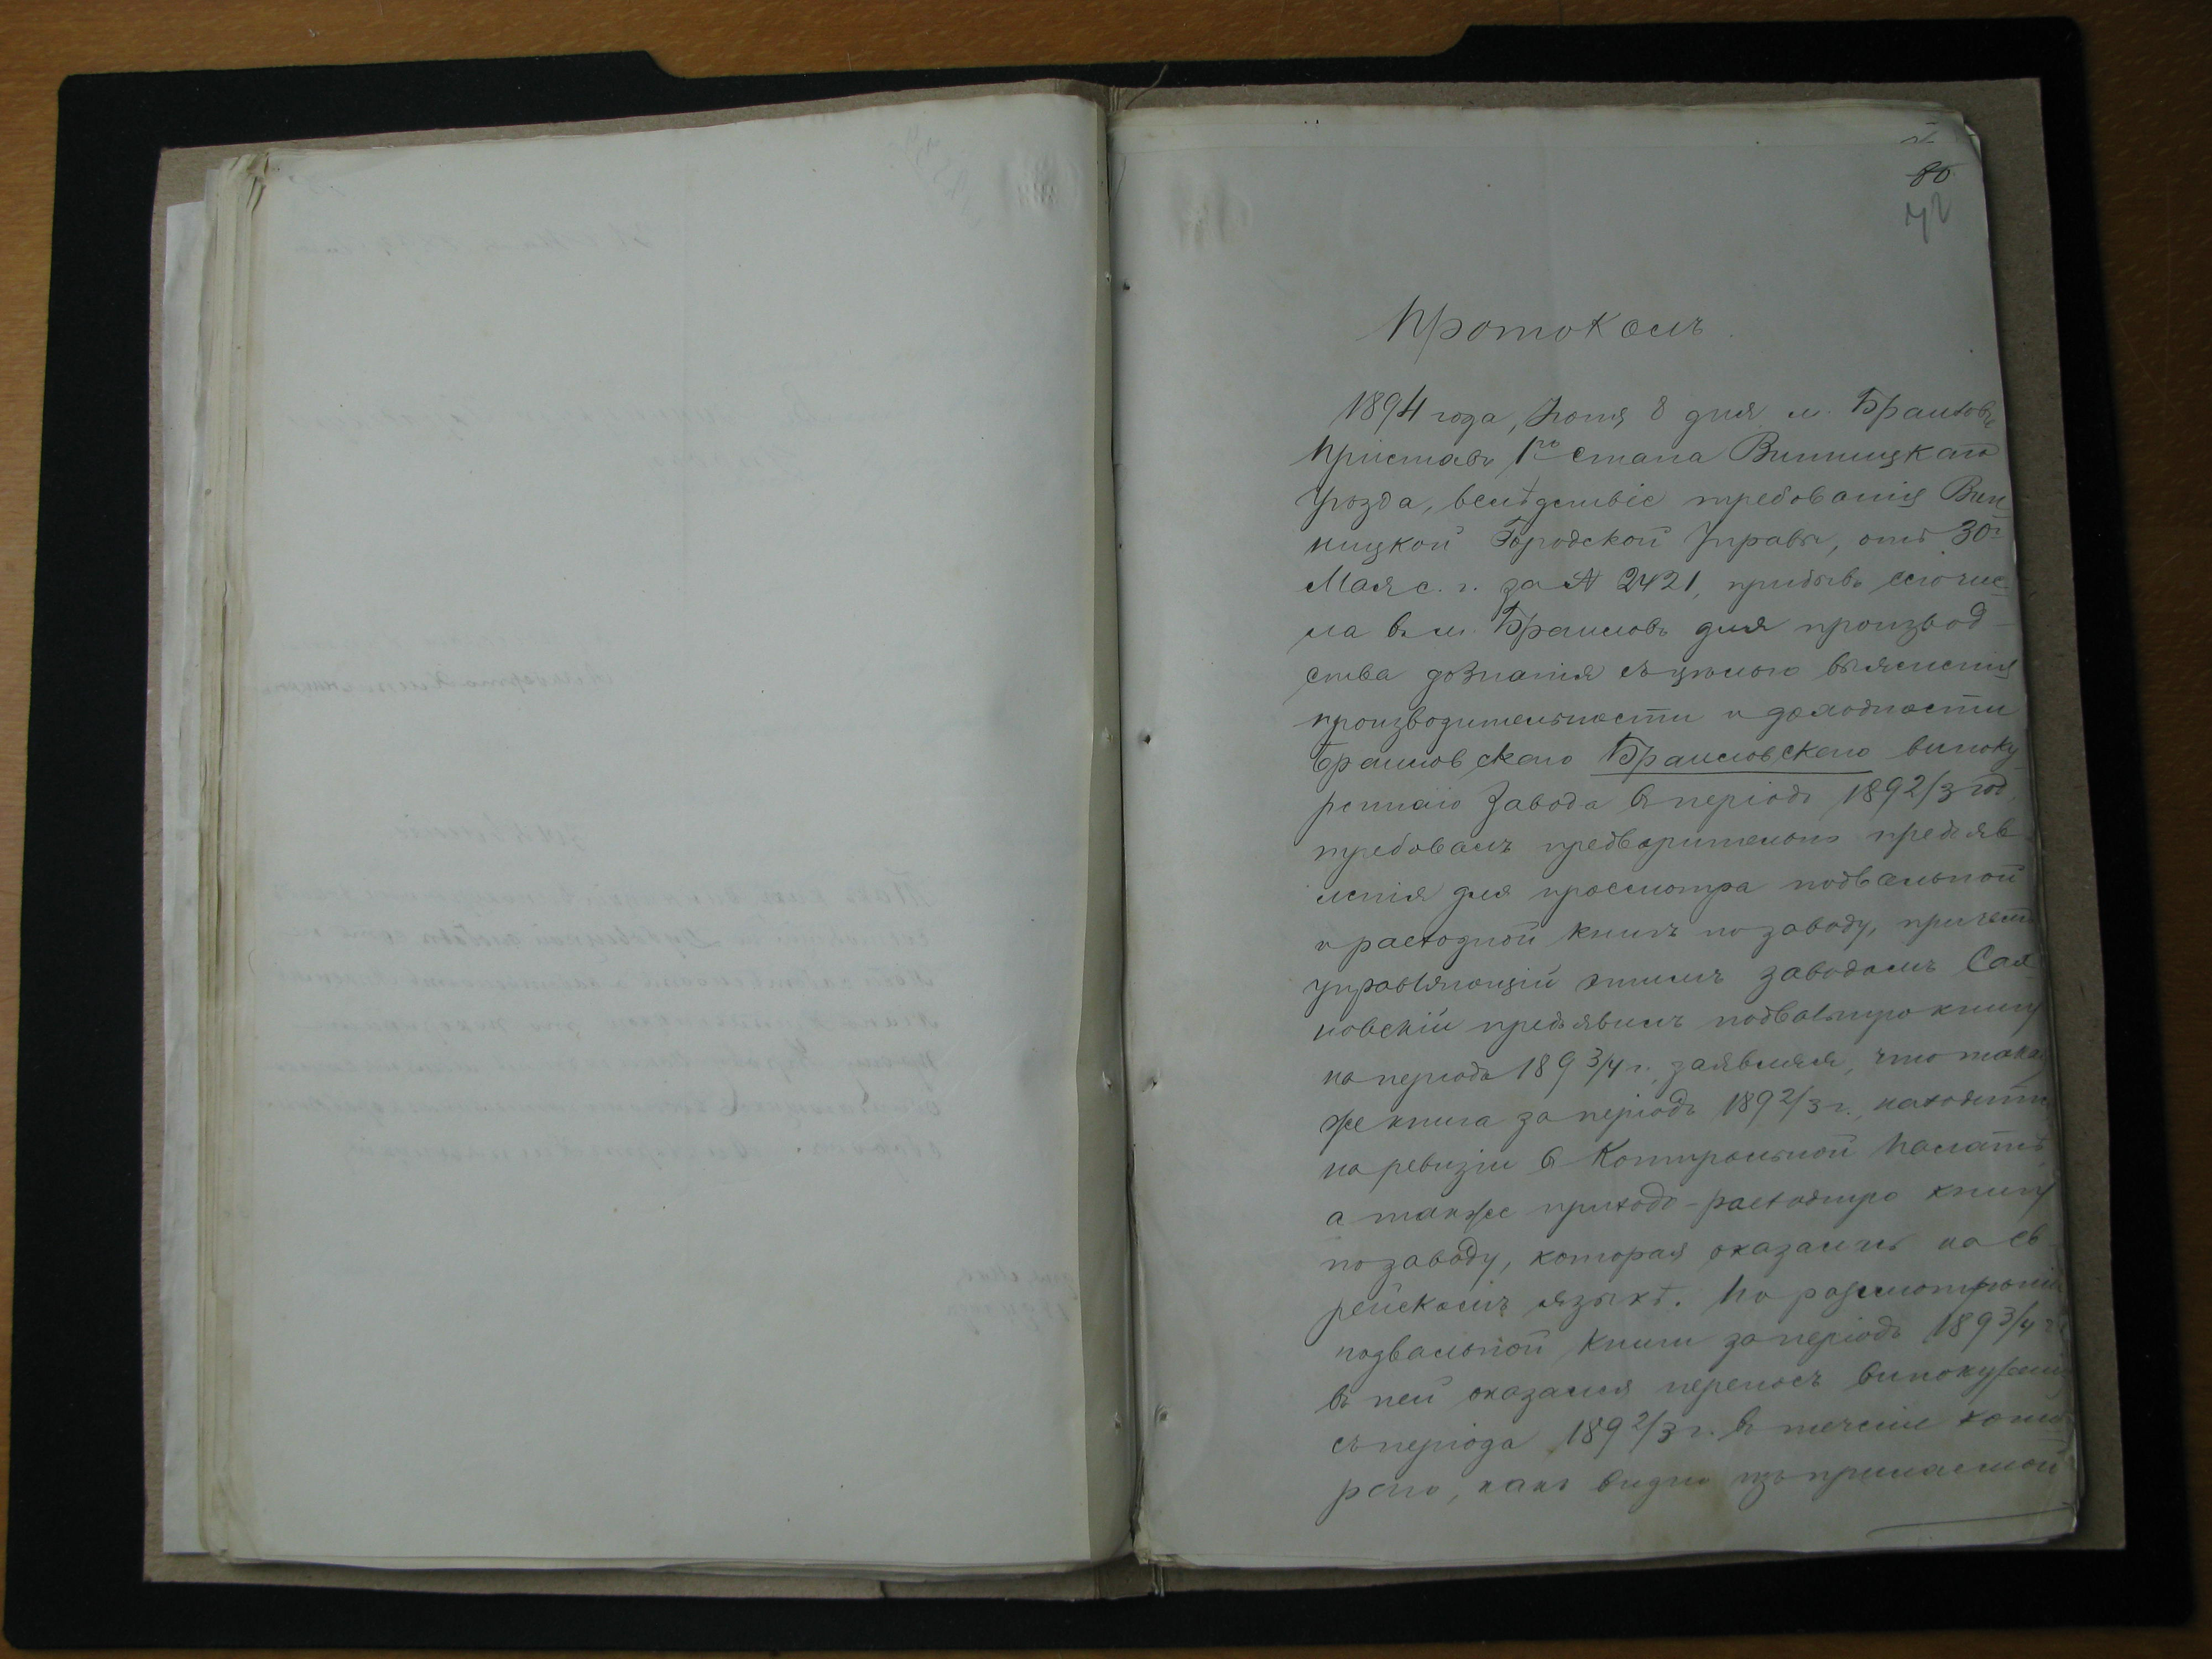 80
42
Протоколъ.
1894 года, Іюня 8 дня м. Браиловъ
Приставъ 1го стана Винницкаго
Уѣзда, вслѣдствіе требованія Вин
ницкой Городской Управы, отъ 30г
Мая с. г. за № 2421, прибывъ сего чис
ла въ м. Браиловъ для производ-
ства дознанія съ цѣлью выясненія
производительности и доходности
Браиловскаго Браиловскаго виноку
реннаго Завода въ періодъ 1892/3 год.
требовалъ предварительно предъяв
ленія для просмотра подвальной
и расходной книгъ по заводу, причемъ
управляющій этимъ заводомъ Сая
новскій предъявилъ подвальную книгу
на періодъ 1893/4 г. заявляя, что такая
же книга за періодъ 1892/3 г., находится
на ревизіи в Контрольной Палатѣ,
а также приходо-расходную книгу
по заводу, которая оказалась на ев
рейскомъ языкѣ. По разсмотрѣніи
подвальной книги за періодъ 1893/4 г.
въ ней оказался переносъ винокуренія
съ періода 1892/3 г. въ теченіе кото
раго, какъ видно изъ прилагаемой